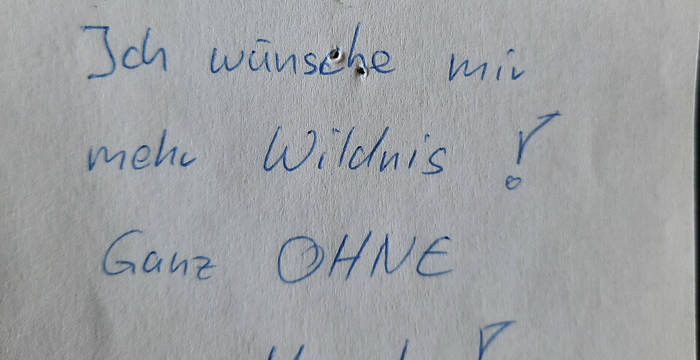 Ich wünsche mir
mehr Wildnis !
Ganz OHNE